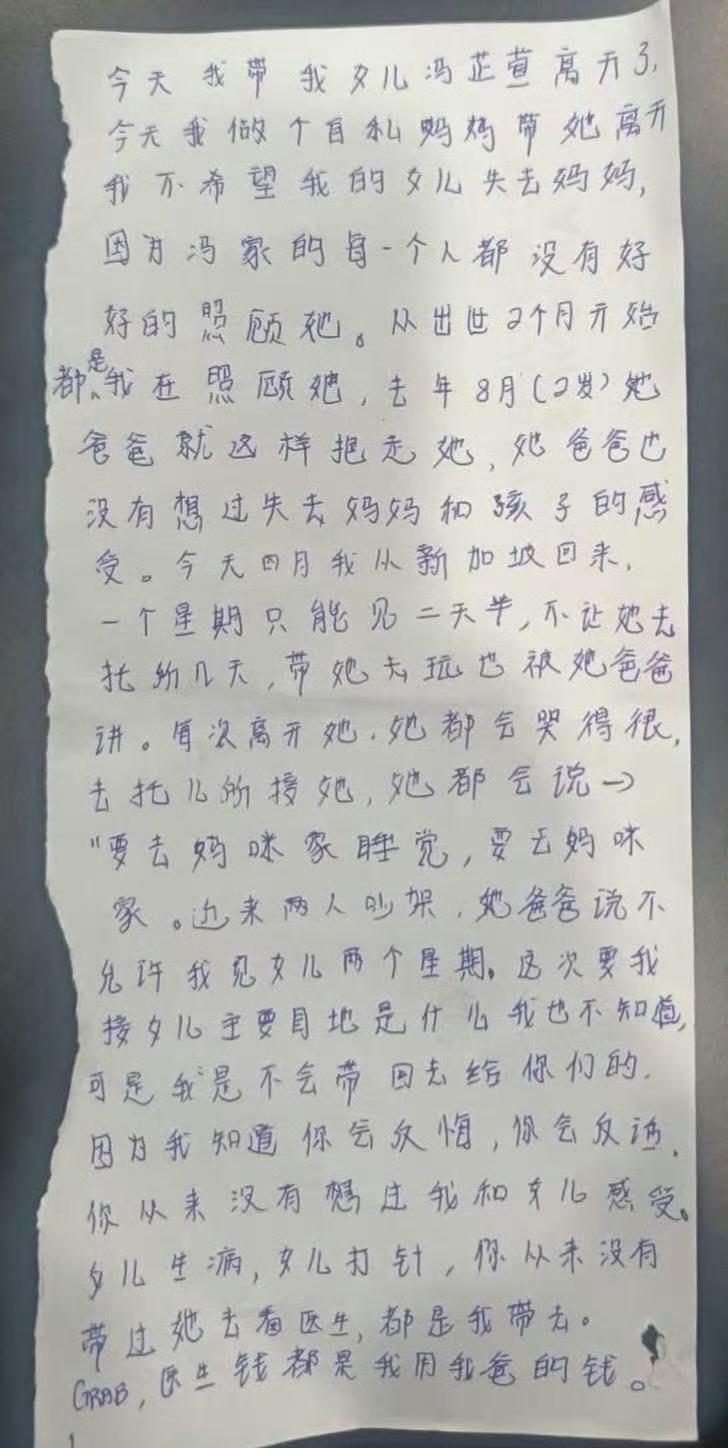 今天我带我女儿冯芷萱离开了,
今天我做个自私妈妈带她离开
我不希望我的女儿失去妈妈,
因为冯家的每一个人都没有好
好的照顾她。从出世2个月开始
都是我在照顾她,去年8月(2岁)她
爸爸就这样抱走她,她爸爸也
没有想过失去妈妈和孩子的感
受。今天四月我从新加坡回来,
一个星期只能见二天半,不让她去
托所几天,带她去玩也被她爸爸
讲。每次离开她,她都会哭得很,
去托儿所接她,她都会说→
"要去妈咪家睡觉,要去妈咪
家。近来两人吵架,她爸爸说不
允许我见女儿两个星期。这次要我
接女儿主要目地是什么我也不知道,
可是我是不会带回去给你们的.
因为我知道你会反悔,你会反话.
你从来没有想过我和女儿感受。
女儿生病,女儿打针,你从来没有
带过她去看医生,都是我带去。
GRAB,医生钱都是我用我爸的钱。